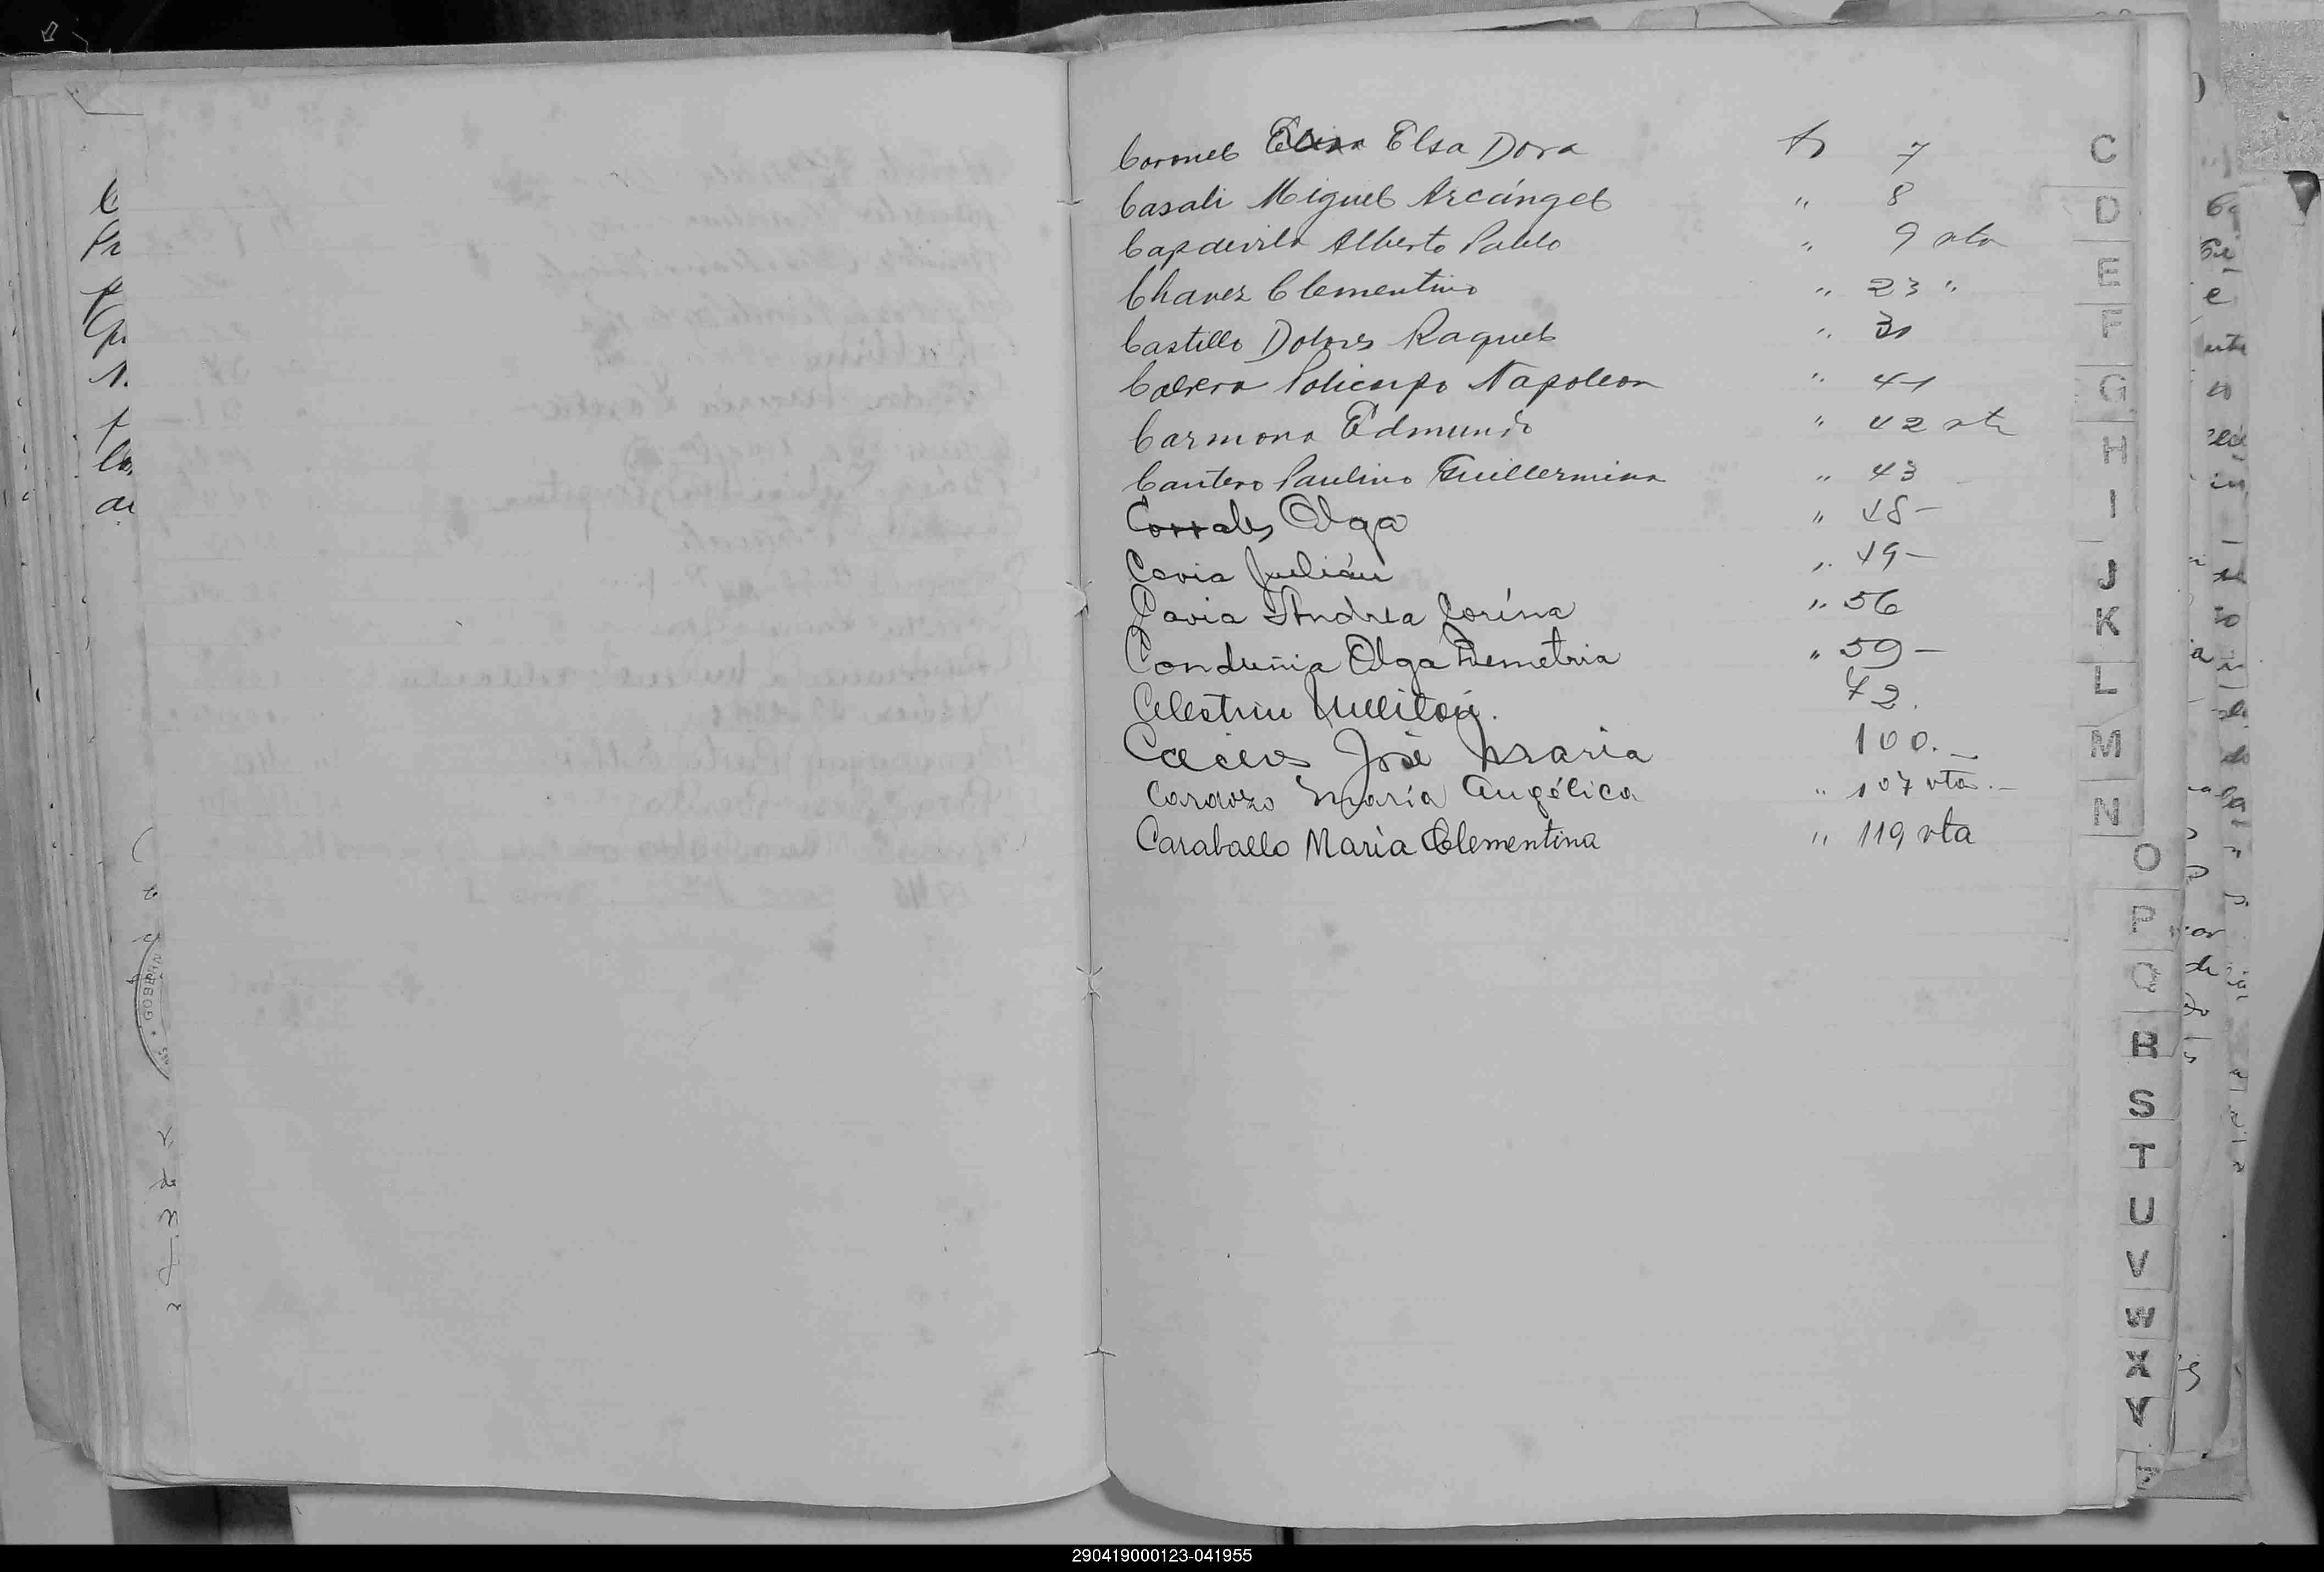 Coronel Elsa Dora fs 7
Casali Miguel Arcángel " 8
Capdevila Alberto Pablo " 9 vta
Chavez Clementino " 23 "
Castillo Dolores Raquel "
Policarpo Napoleon " 41
Carmona Edmundo " 42 vta
Cantero Paulino Guillermina " 43
Corrales Olga " 48-
Cavia Julián " 49-
Cavia Andrea Corína " 56
Olga Demetria " 59-
Celestin
José Maria 100.-
Cardozo María Angélica " 107 vta.-
Caraballo María Clementina " 119 vta
C
D
E
F
G
H
I
J
K
L
M
N
O
P
Q
R
S
T
U
V
W
X
Y
Z
290419000123-041955